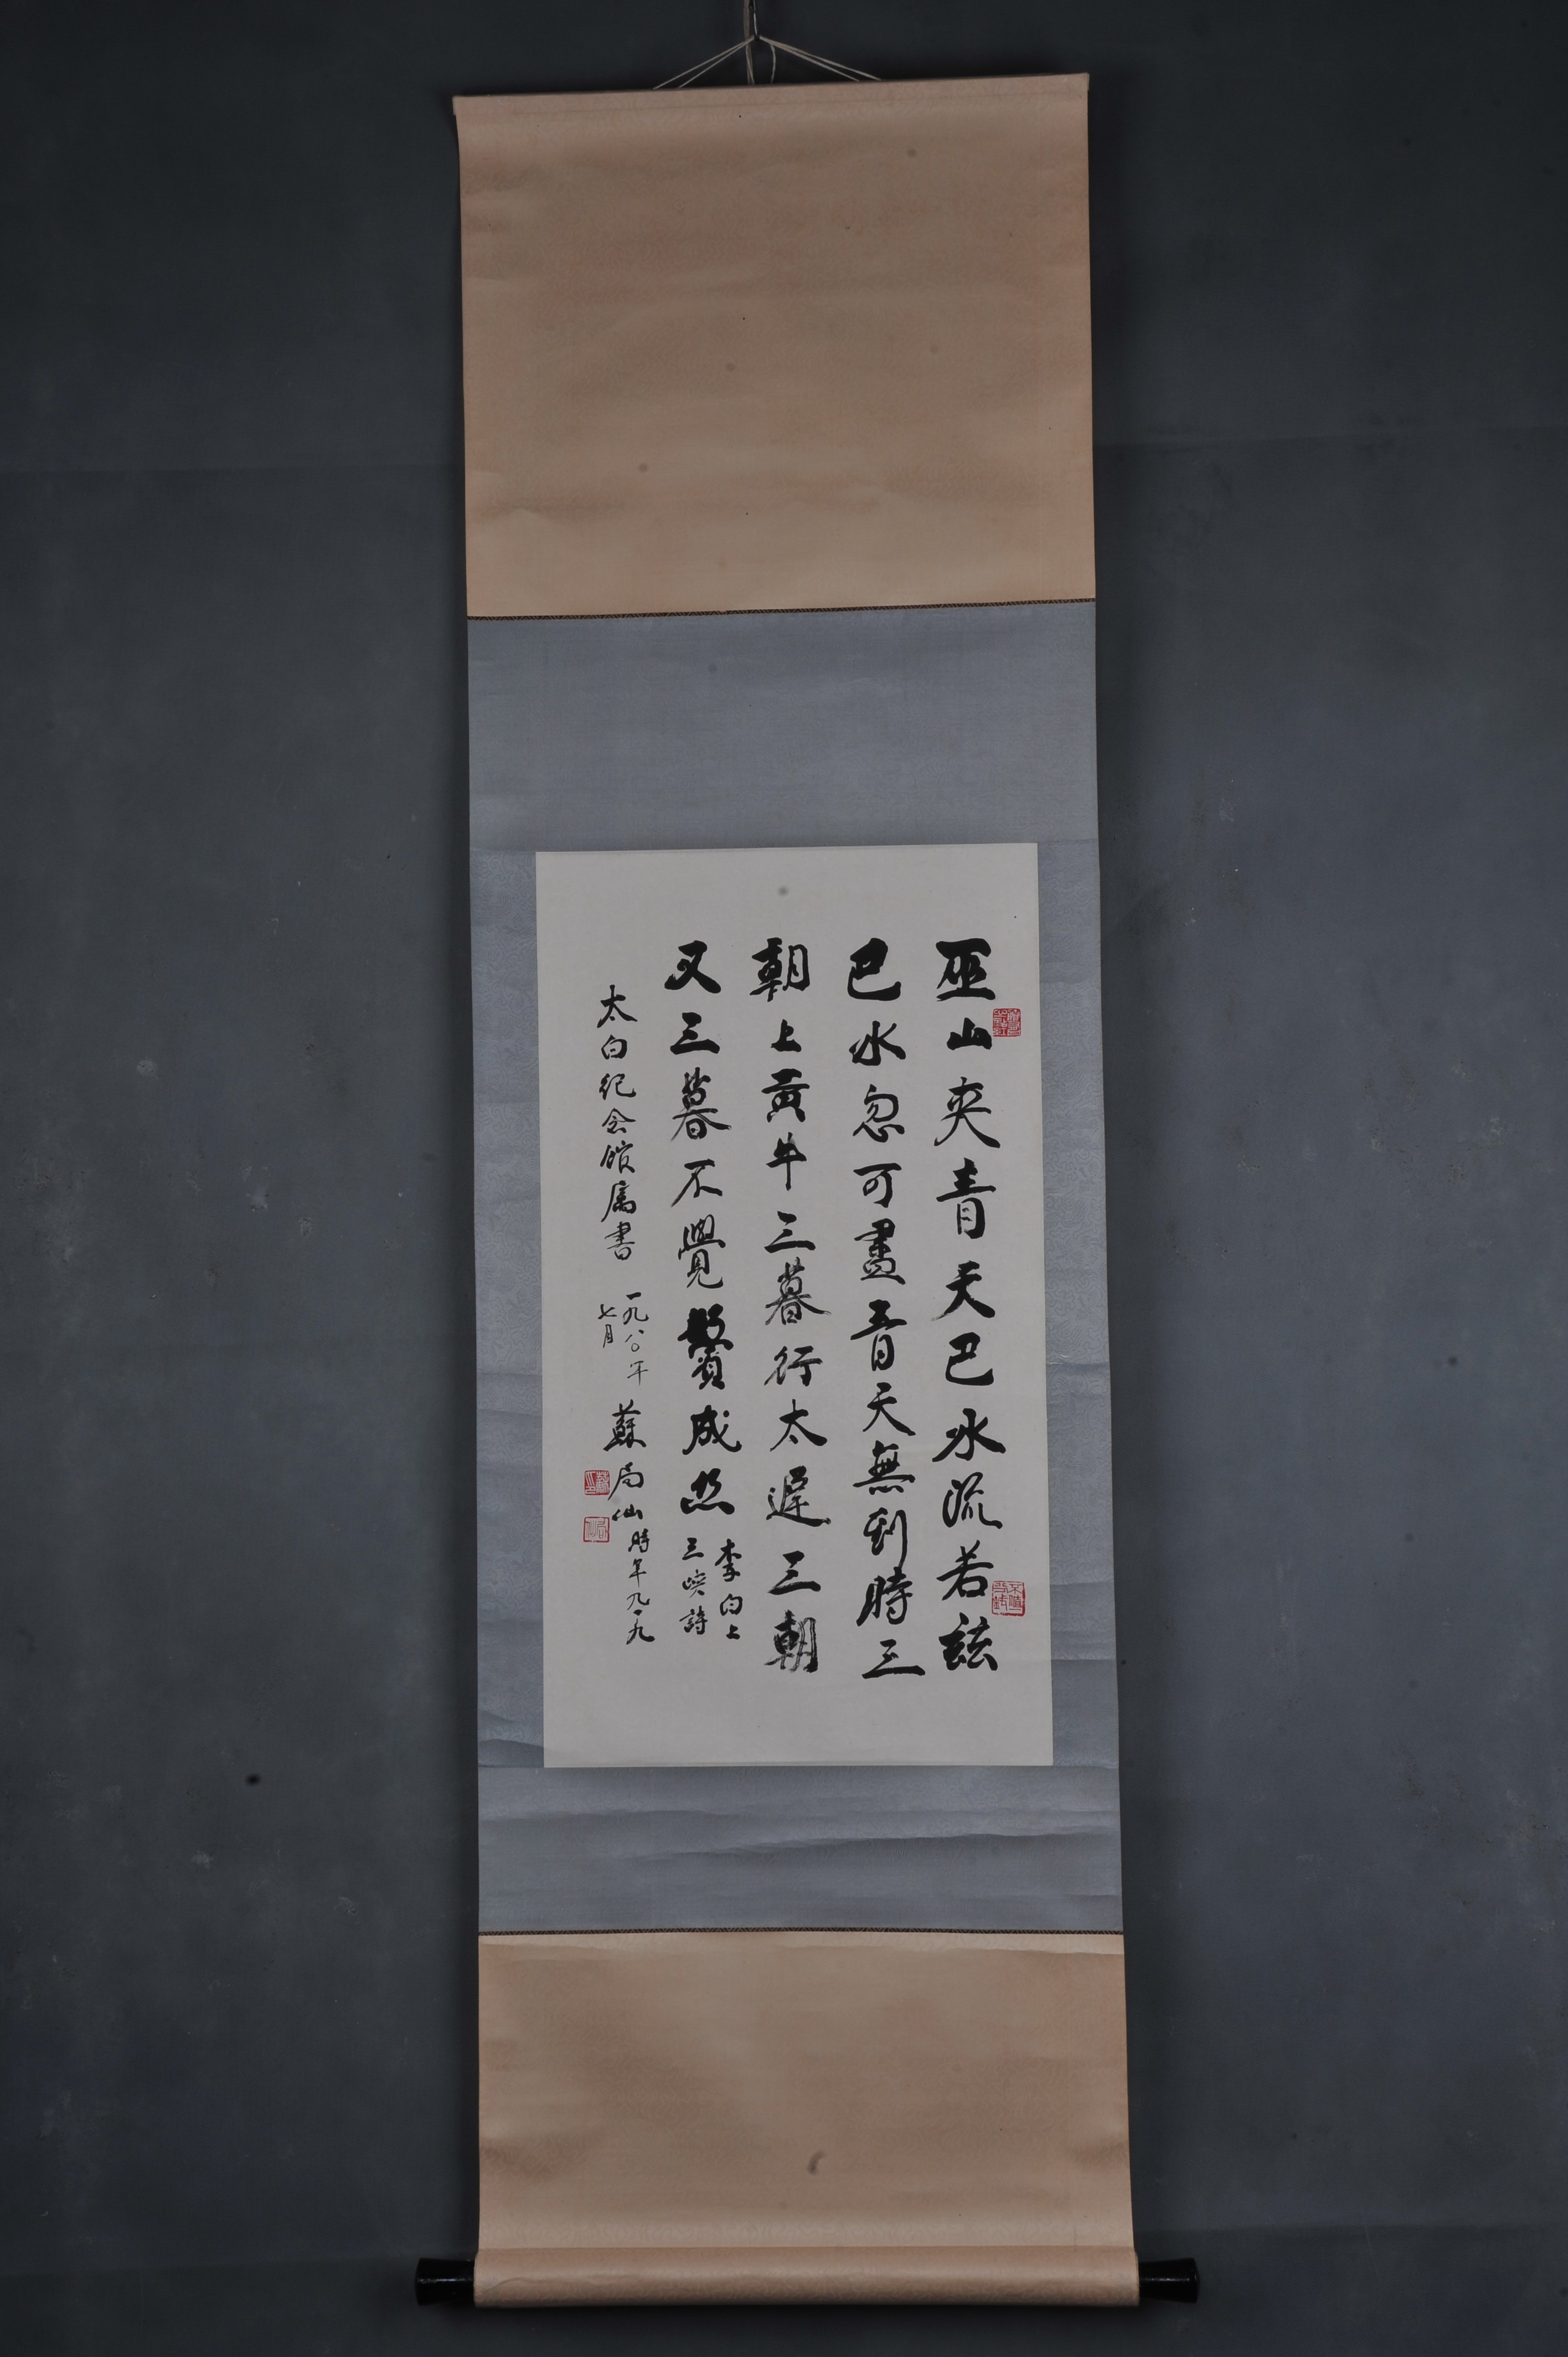 巫山夾青天巴水流若茲
巴水忽可盡青天無到時三
朝上黃牛三暮行太遲三朝
又三暮不覺鬢成絲
李白上
三峽詩
太白纪念館属書
一九八〇年
七月
蘇局仙時年九九